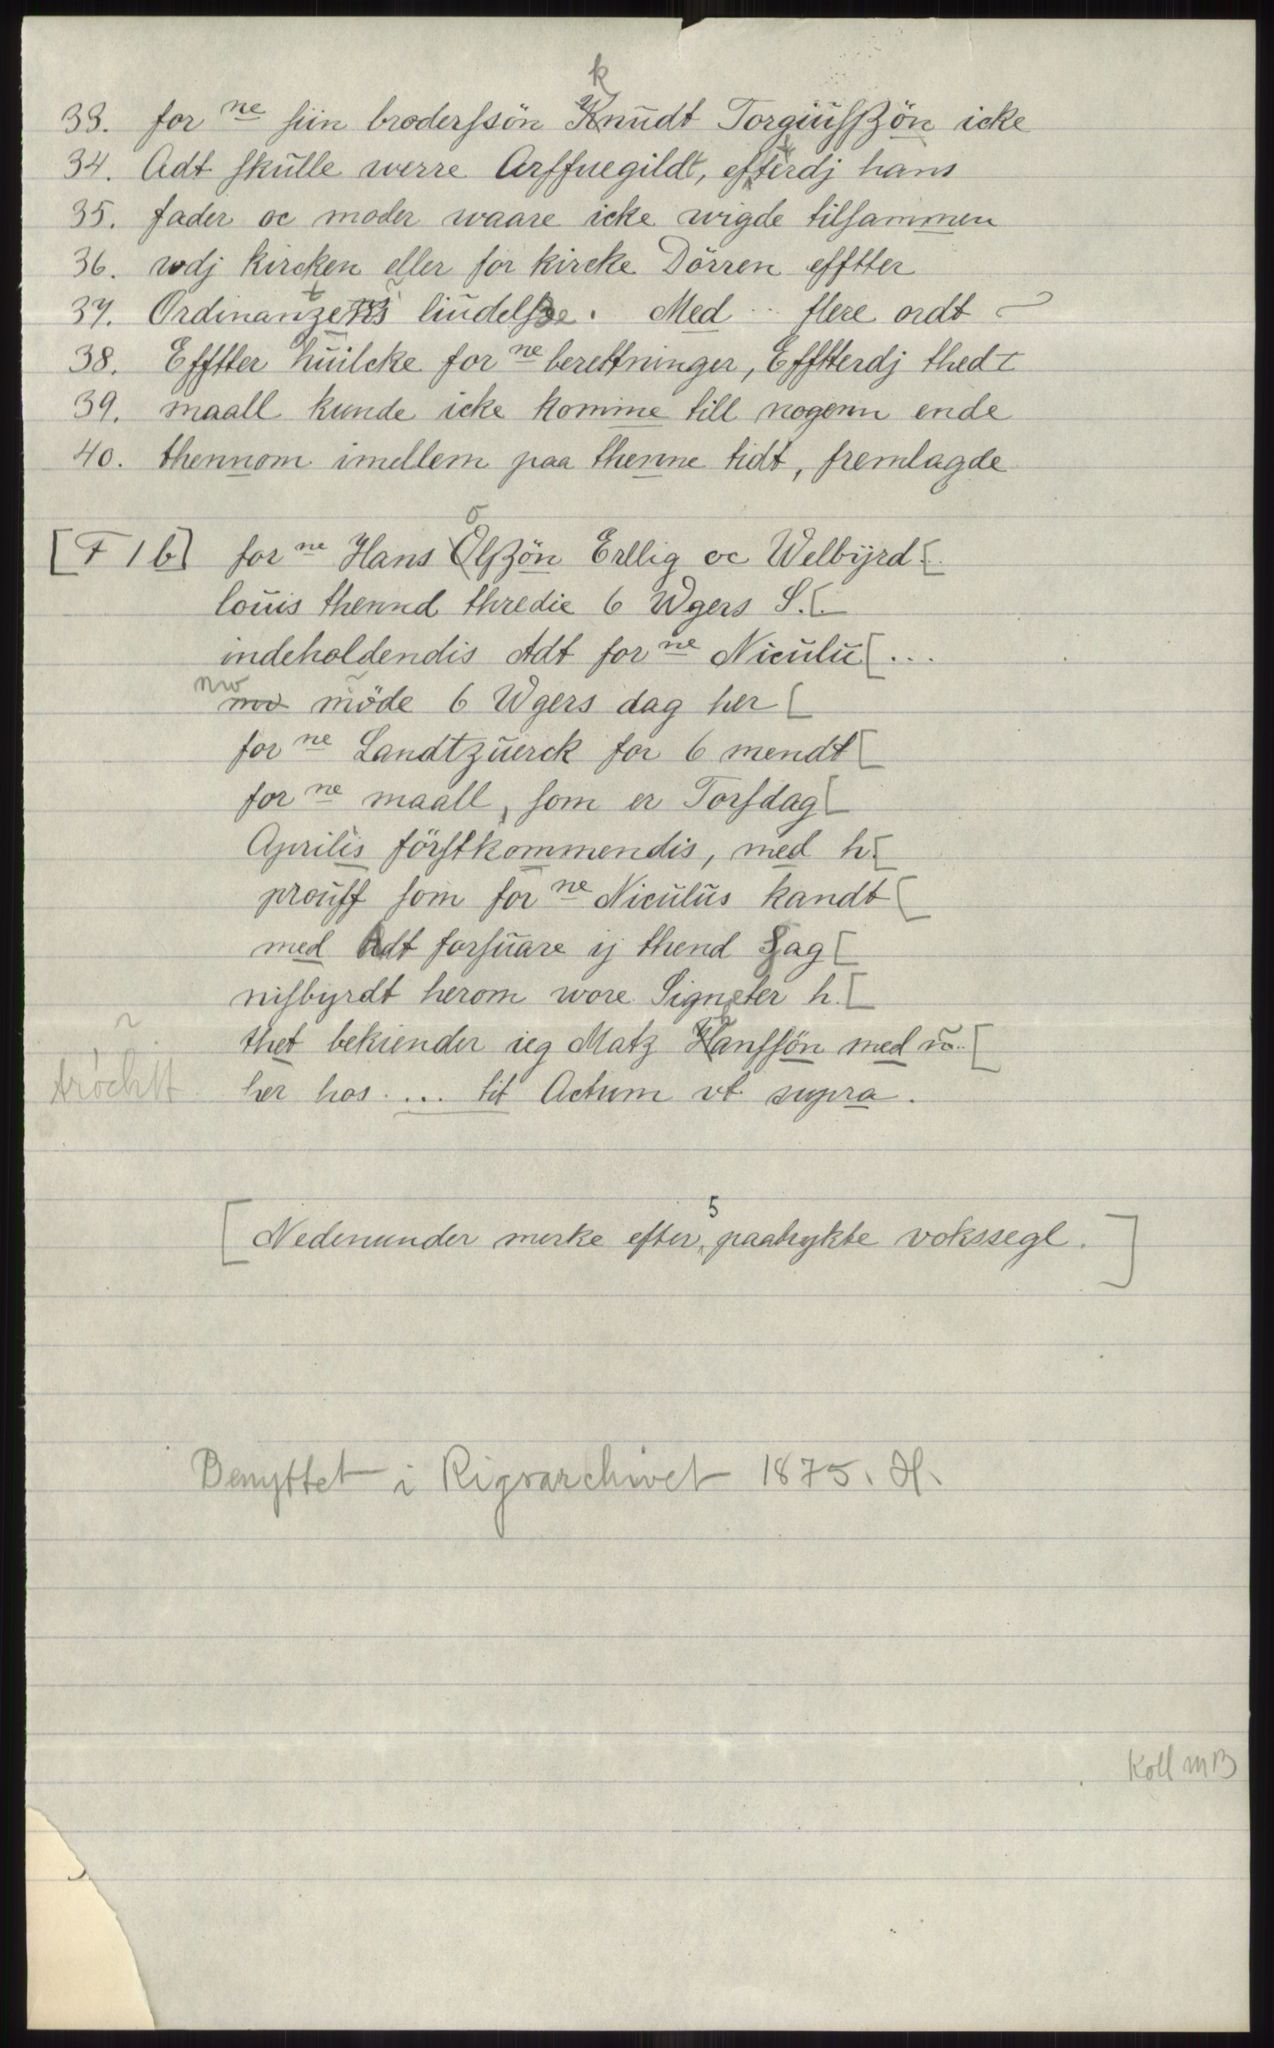 33. for ne siin broderssön knudt Torgiusszön icke
34. Adt skulle werre Arffuegildt, efterdj hans
35. fader oc moder waare icke wigde tilsammen
36. wdj kircken eller for kircke Dörren efftter
37. Ordinantzens liudelsze. Med ... flere ordt
38. Efftter huilcke for ne berettninger, Efftterdj thedt
39. maall kunde icke komme till nogenn ende
40. thennom imellem paa thenne tidt, fremlagde
[F 1 b] for ne Hans olszön Erllig oc Welbÿrd [
louis thennd thredie 6 Wgers S. [
indeholdendis Adt for ne Niculu [ ...
nw möde 6 Wgers dag her [
for ne Landtzuerck for 6 mendt [
for ne maall, som er Torsdag [
Aprilis förstkommendis, med h. [
prouff som for ne Niculus kandt [
med Adt forsuare ij thend Sag [
nisbyrdt herom wore Signeter h. [
thet bekiender ieg Matz Hanssön med [
tröckt her hos .... tit Actum vt supra.
[Nedenunder merke efter 5 paatrykte vokssegl.]
Benyttet i Rigsarchivet 1875. H.
Koll MB